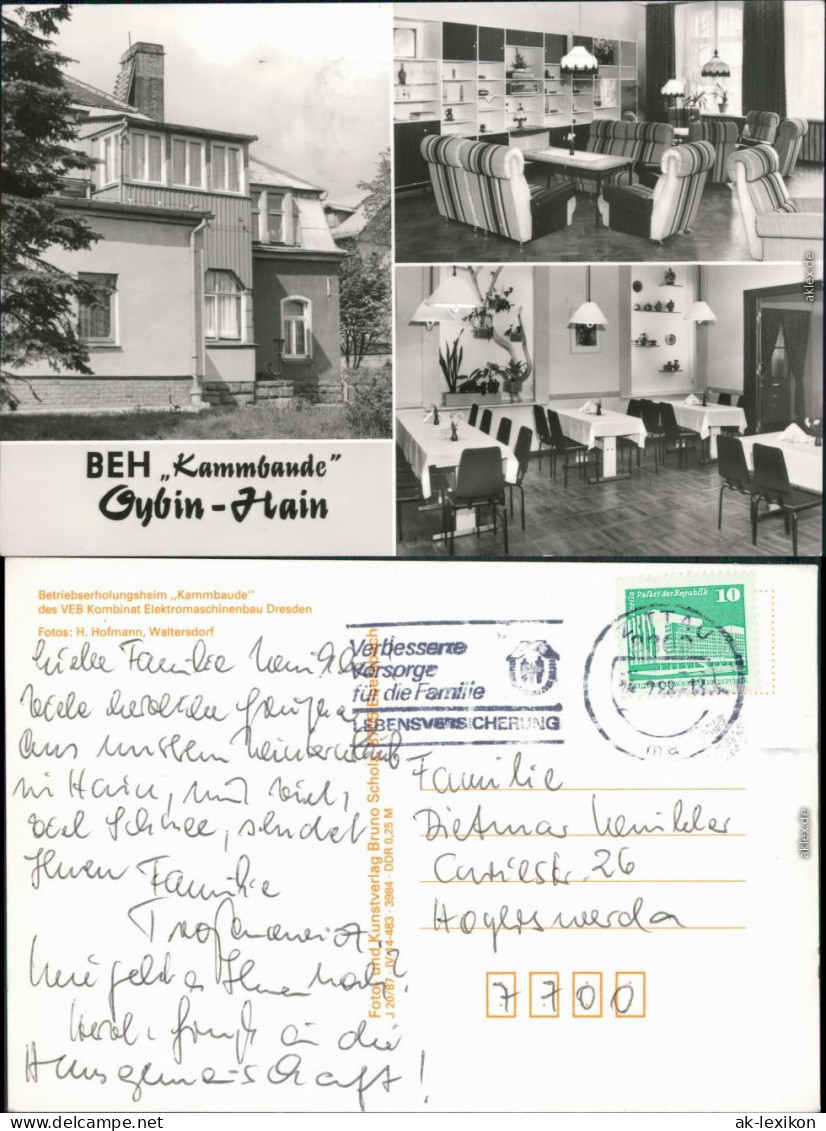 BEH „Kammbaude"
Oybin-Hain
Betriebserholungsheim „Kammbaude"
des VEB Kombinat Elektromaschinenbau Dresden
Fotos: H. Hofmann, Waltersdorf
Verbesserte
Vorsorge
für die Familie
LEBENSVERSICHERUNG
Palast der Republik
10
ZITTAU
Liebe Familie
viele herzliche Grüße
aus unserem Winterurlaub
in Hain, mit viel,
viel Schnee, sendet
Ihnen Familie
Wie geht es Ihnen noch?
Herzl. Grüße an die
Hausgemeinschaft!
Foto- und Kunstverlag Bruno Scholz
J 20/87 · IV-14-483 · 3984 · DDR 0,25 M
Familie
Dietmar
26
Hoyerswerda
7700
aklex.de
aklex.de
www.ak-ansichtskarten.de
ak-lexikon